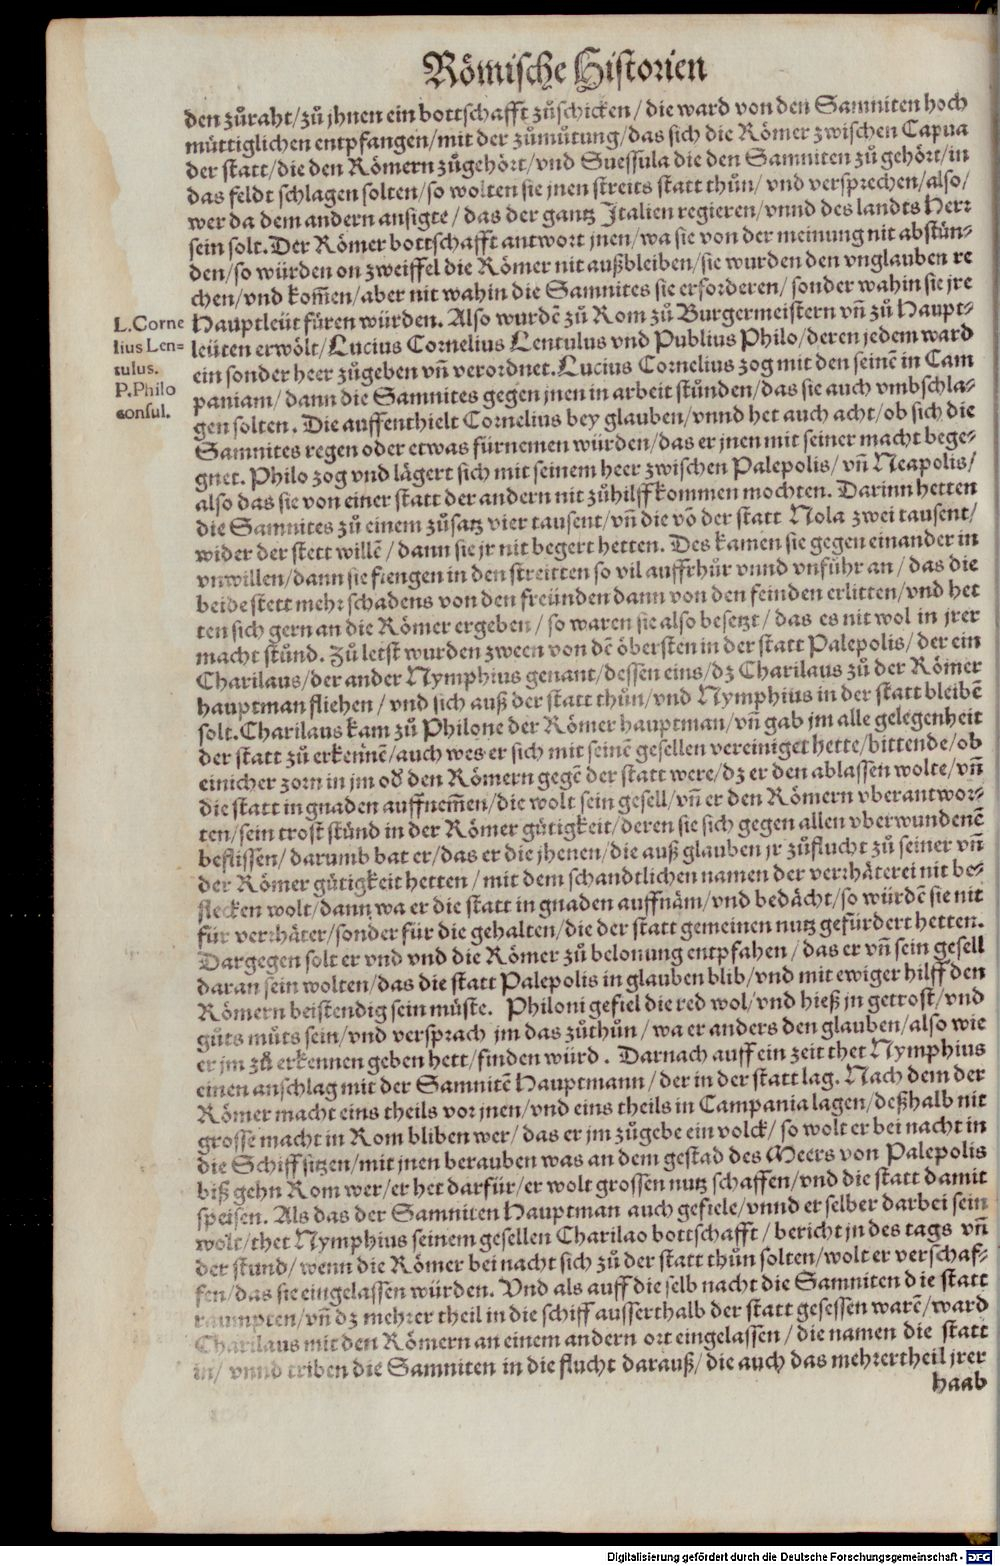 Römische Historien
den zůraht/zů jhnen ein bottschafft zůschicken/die ward von den Samniten hoch
müttiglichen entpfangen/mit der zůmůtung/das sich die Römer zwischen Capua
der statt/die den Römern zůgehört/vnd Suessula die den Samniten zůgehört/in
das feldt schlagen solten/so wolten sie jnen streits statt thůn/vnd versprechen/also/
wer da dem andern ansigte/das der gantz Italien regieren/vnnd des landts Herr
sein solt. Der Römer bottschafft antwort jnen/wa sie von der meinung nit abstün-
den/so würden on zweiffel die Römer nit außbleiben/sie wurden den vnglauben re
chen/vnd kom̃en/aber nit wahin die Samnites sie erforderen/sonder wahin sie jre
Hauptleüt füren würden. Also wurdẽ zů Rom zů Burgermeistern vñ zů Haupt-
leüten erwölt/Lucius Cornelius Lentulus vnd Publius Philo/deren jedem ward
ein sonder heer zůgeben vñ verordnet. Lucius Cornelius zog mit den seinẽ in Cam
paniam/dann die Samnites gegen jnen in arbeit stůnden/das sie auch vmbschla-
gen solten. Die auffenthielt Cornelius bey glauben/vnnd het auch acht/ob sich die
Samnites regen oder etwas fürnemen würden/das er jnen mit seiner macht bege-
gnet. Philo zog vnd lägert sich mit seinem heer zwischen Palepolis/vñ Neapolis/
also das sie von einer statt der andern nit zůhilff kommen mochten. Darinn hetten
die Samnites zů einem zůsatz vier tausent/vñ die võ der statt Nola zwei tausent/
wider der stett willẽ/dann sie jr nit begert hetten. Des kamen sie gegen einander in
vnwillen/dann sie fiengen in den streitten so vil auffrhůr vnnd vnführ an/das die
beide stett mehr schadens von den freünden dann von den feinden erlitten/vnd het
ten sich gern an die Römer ergeben/so waren sie also besetzt/das es nit wol in jrer
macht stůnd. Zů letst wurden zween von dẽ öbersten in der statt Palepolis/der ein
Charilaus/der ander Nymphius genant/dessen eins/dz Charilaus zů der Römer
hauptman fliehen/vnd sich auß der statt thůn/vnd Nymphius in der statt bleibẽ
solt. Charilaus kam zů Philone der Römer hauptman/vñ gab jm alle gelegenheit
der statt zů erkennẽ/auch wes er sich mit seinẽ gesellen vereiniget hette/bittende/ob
einicher zorn in jm oď den Römern gegẽ der statt were/dz er den ablassen wolte/vñ
die statt in gnaden auffnem̃en/die wolt sein gesell/vñ er den Römern vberantwor-
ten/sein trost stůnd in der Römer gütigkeit/deren sie sich gegen allen vberwundenẽ
beflissen/darumb bat er/das er die jhenen/die auß glauben jr zůflucht zů seiner vñ
der Römer gütigkeit hetten/mit dem schandtlichen namen der verrhäterei nit be-
flecken wolt/dann wa er die statt in gnaden auffnäm/vnd bedächt/so würdẽ sie nit
für verrhäter/sonder für die gehalten/die der statt gemeinen nutz gefürdert hetten.
Dargegen solt er vnd vnd die Römer zů belonung entpfahen/das er vñ sein gesell
daran sein wolten/das die statt Palepolis in glauben blib/vnd mit ewiger hilff den
Römern beistendig sein müste. Philoni gefiel die red wol/vnd hieß jn getrost/vnd
gůts můts sein/vnd versprach jm das zůthůn/wa er anders den glauben/also wie
er jm zů erkennen geben hett/finden würd. Darnach auff ein zeit thet Nymphius
einen anschlag mit der Samnitẽ Hauptmann/der in der statt lag. Nach dem der
Römer macht eins theils vor jnen/vnd eins theils in Campania lagen/deßhalb nit
grosse macht in Rom bliben wer/das er jm zůgebe ein volck/so wolt er bei nacht in
die Schiff sitzen/mit jnen berauben was an dem gestad des Meers von Palepolis
biß gehn Rom wer/er het darfür/er wolt grossen nutz schaffen/vnd die statt damit
speisen. Als das der Samniten Hauptman auch gefiele/vnnd er selber darbei sein
wolt/thet Nymphius seinem gesellen Charilao bottschafft/bericht jn des tags vñ
der stund/wenn die Römer bei nacht sich zů der statt thůn solten/wolt er verschaf-
fen/das sie eingelassen würden. Vnd als auff die selb nacht die Samniten die statt
raumpten/vñ dz mehrer theil in die schiff ausserthalb der statt gesessen warẽ/ward
Charilaus mit den Römern an einem andern ort eingelassen/die namen die statt
in/vnnd triben die Samniten in die flucht darauß/die auch das mehrertheil jrer
haab
L. Corne
lius Len-
tulus.
P. Philo
consul.
Digitalisierung gefördert durch die Deutsche Forschungsgemeinschaft - DFG